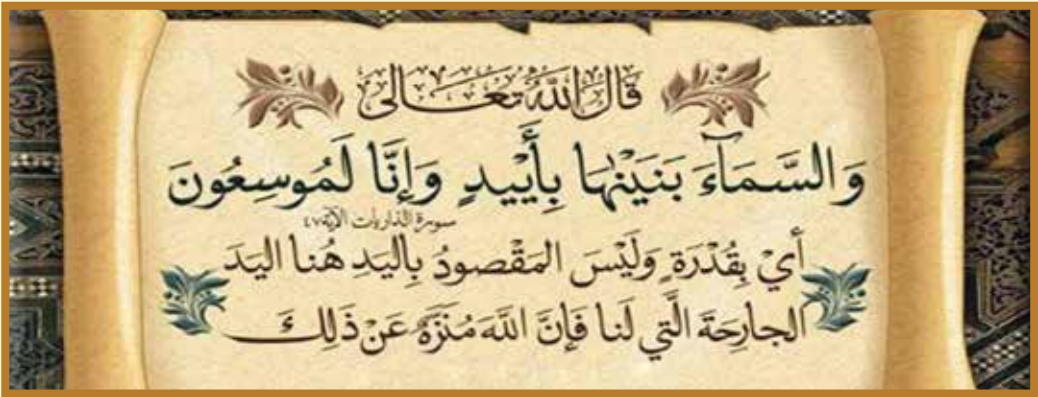 قَالَ اللَّهُ تَعَالَى
وَالسَّمَآءَ بَنَيْنٰهَا بِأَيْيْدٍ وَإِنَّا لَمُوسِعُونَ
سورة الذاريات الآية ٤٧
أَيْ بِقُدْرَةٍ وَلَيْسَ المَقْصودُ بِاليَدِ هُنا اليَدَ
الجارِحَةَ الَّتِي لَنا فَإِنَّ اللَّهَ مُنَزَّهٌ عَنْ ذَلِكَ